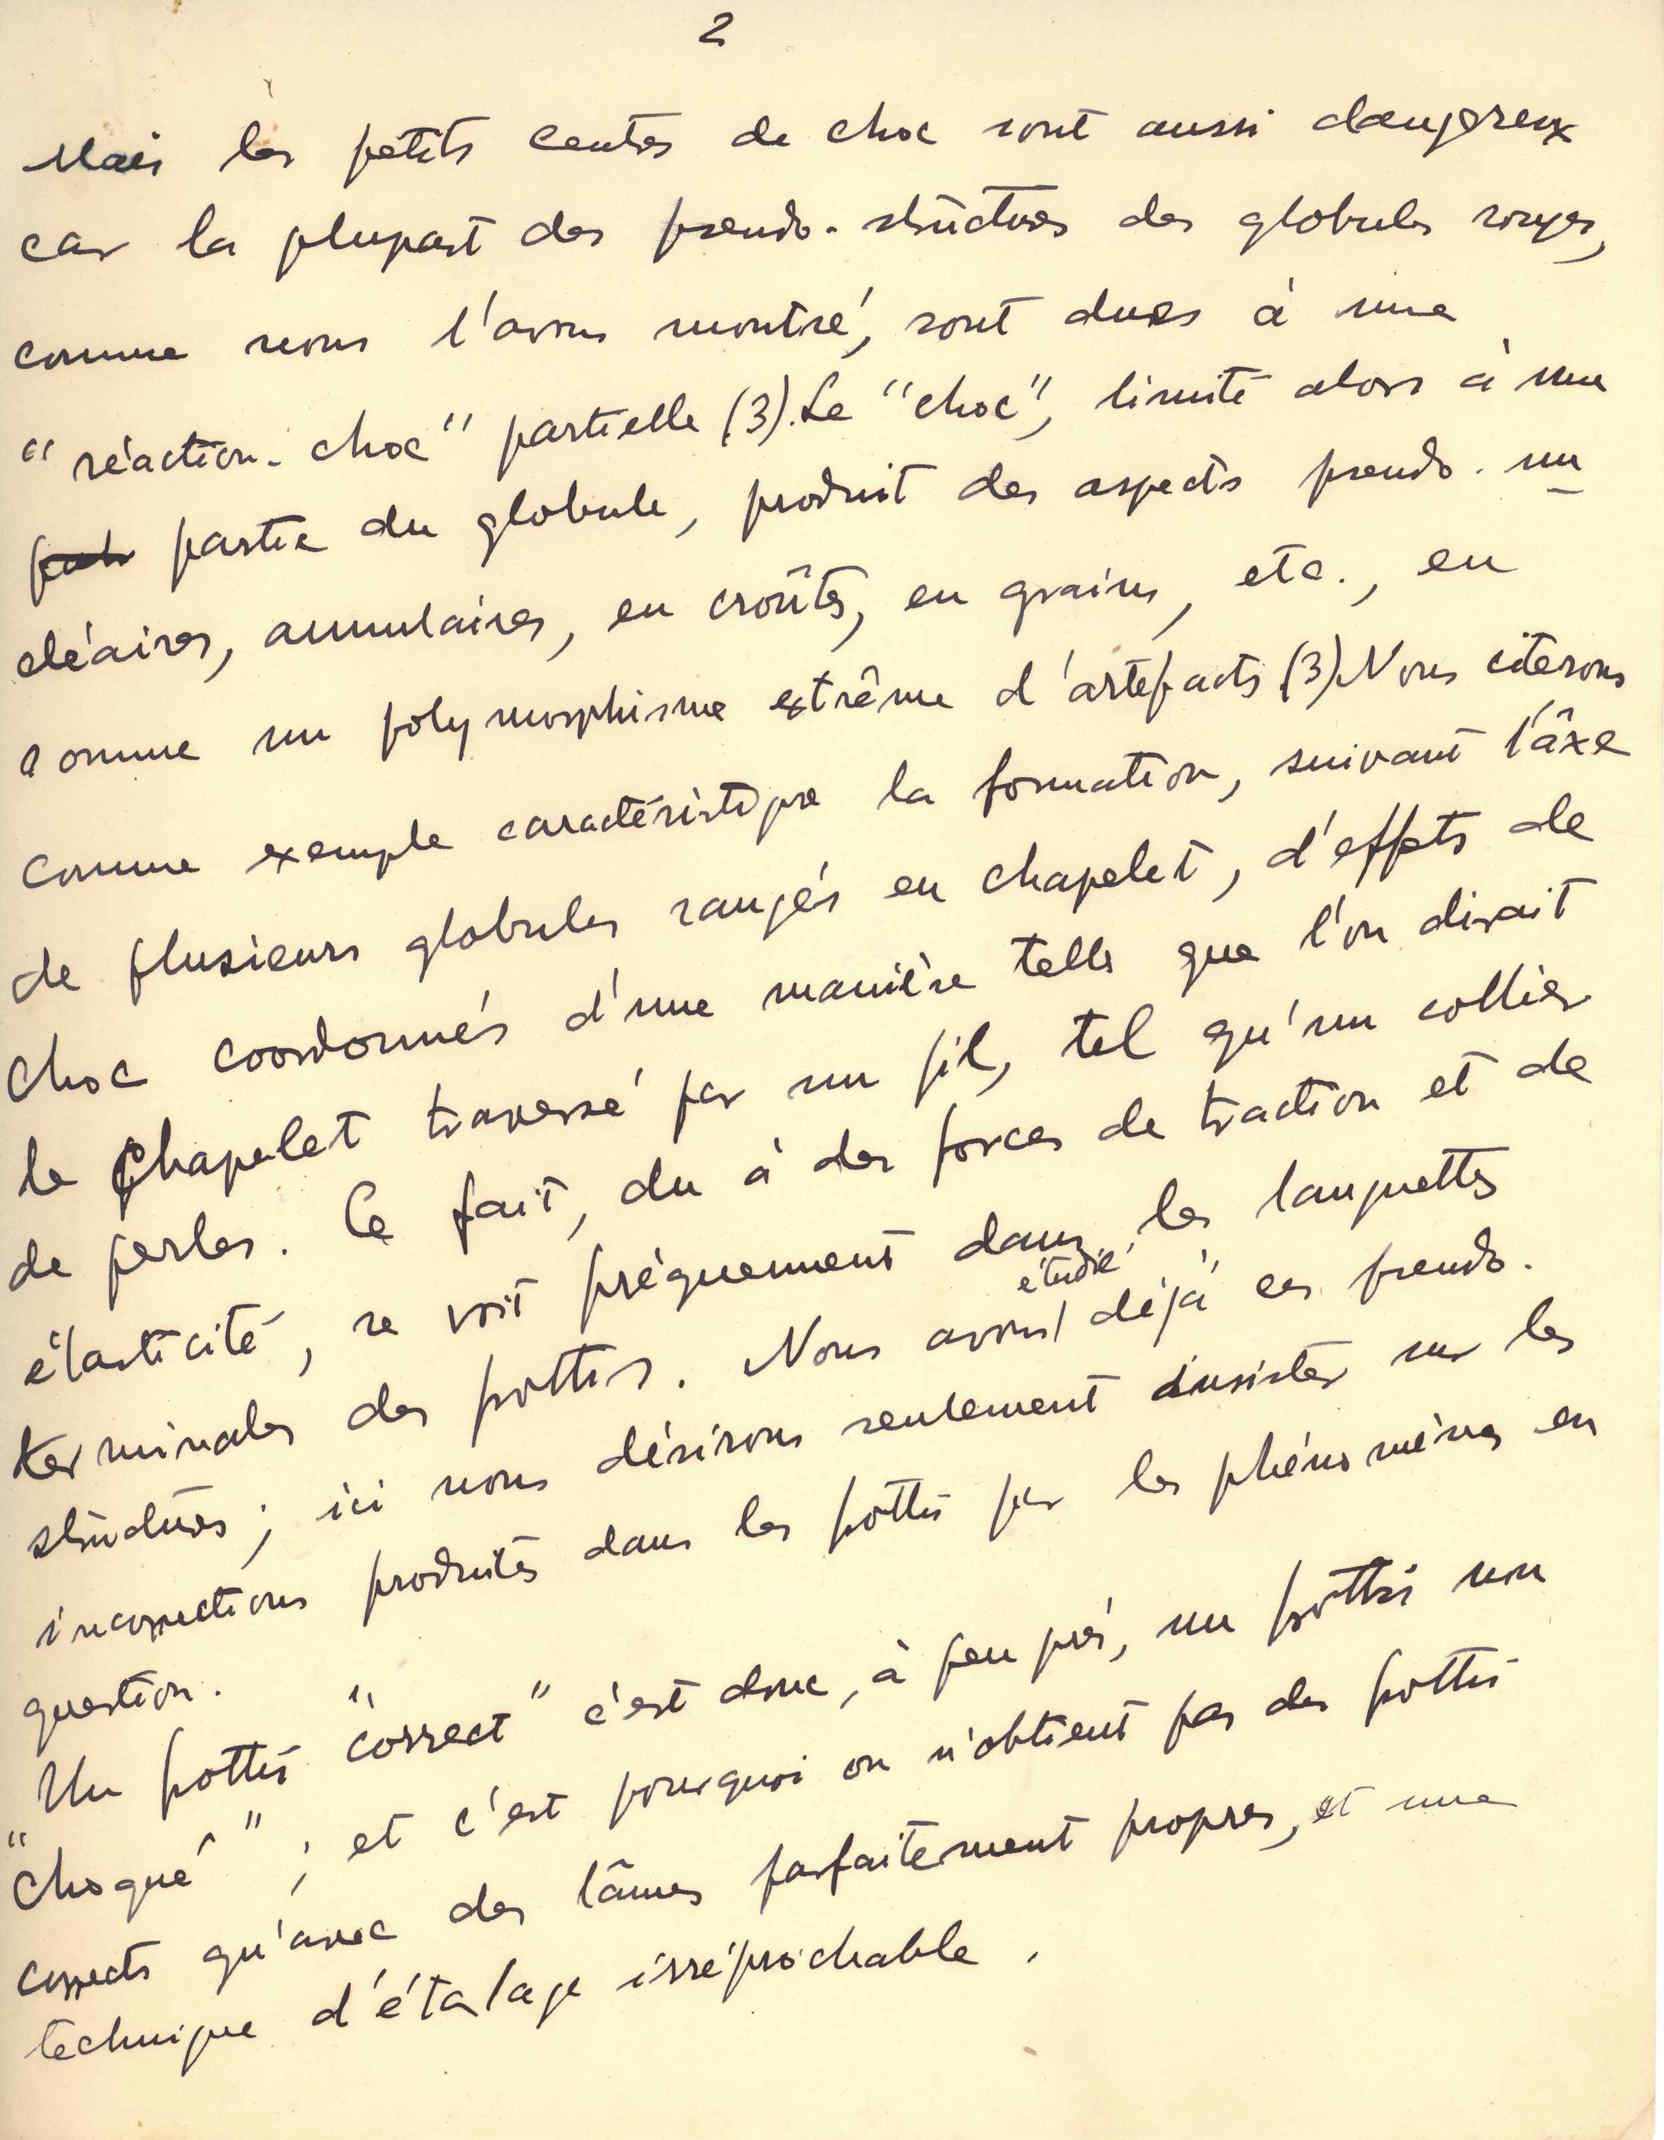 2
Mais les petits centres de choc sont aussi dangereux
car la plupart des pseudo-structures des globules rouges,
comme nous l'avons montré, sont dues à une
"réaction-choc" partielle (3). Le "choc", limité alors à une
partie du globule, produit des aspects pseudo-nu
cléaires, annulaires, en croûtes, en grains, etc., en
somme un polymorphisme extrême d'artefacts (3) Nous citerons
comme exemple caractéristique la formation, suivant l'âxe
de plusieurs globules rangés en chapelet, d'effets de
choc coordonnés d'une manière telle que l'on dirait
le chapelet traversé par un fil, tel qu'un collier
de perles. Ce fait, du à des forces de traction et de
élasticité, se voit fréquemment dans les languettes
terminales des frottis. Nous avons étudié déjà ces pseudo-
structures; ici nous désirons seulement insister sur les
incorrections produites dans les frottis par les phénomènes en
question.
Un frottis "correct" c'est donc, à peu près, un frottis non
"choqué"; et c'est pourquoi on n'obtient pas des frottis
corrects qu'avec des lâmes parfaitement propres, et une
technique d'étalage irréprochable.